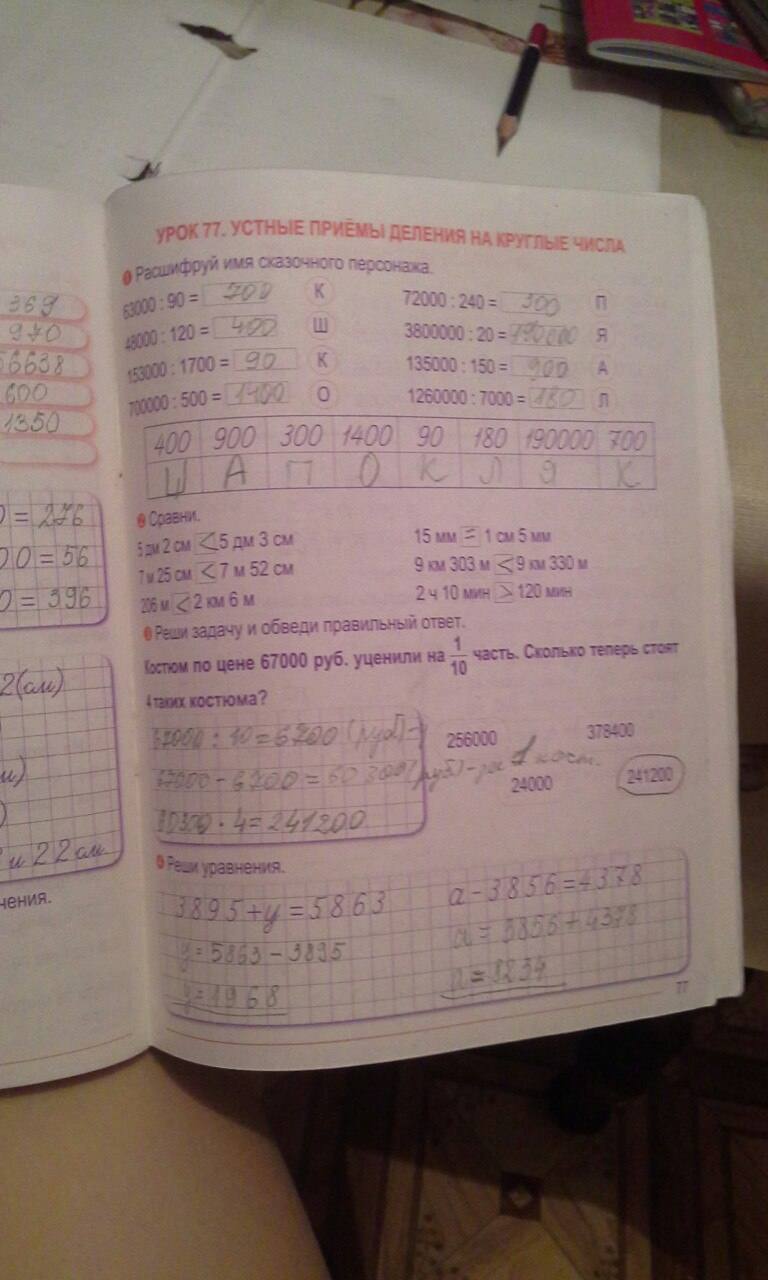 369
970
56638
600
1350
0 = 276
00 = 56
0 = 396
2(см)
и 22 см
чения.
УРОК 77. УСТНЫЕ ПРИЁМЫ ДЕЛЕНИЯ НА КРУГЛЫЕ ЧИСЛА
1 Расшифруй имя сказочного персонажа.
63000 : 90 = 700 К 72000 : 240 = 300 П
48000 : 120 = 400 Ш 3800000 : 20 = 190000 Я
153000 : 1700 = 90 К 135000 : 150 = 900 А
700000 : 500 = 1400 О 1260000 : 7000 = 180 Л
400 900 300 1400 90 180 190000 700
Ш А П О К Л Я К
2 Сравни.
5 дм 2 см < 5 дм 3 см 15 мм = 1 см 5 мм
7 м 25 см < 7 м 52 см 9 км 303 м < 9 км 330 м
206 м < 2 км 6 м 2 ч 10 мин > 120 мин
3 Реши задачу и обведи правильный ответ.
Костюм по цене 67000 руб. уценили на 1/10 часть. Сколько теперь стоят
4 таких костюма?
67000 : 10 = 6700 (руб) - у
256000 378400
67000 - 6700 = 60300 (руб) - за 1 кост.
24000 241200
60300 · 4 = 241200
4 Реши уравнения.
3895 + у = 5863 а - 3856 = 4378
у = 5863 - 3895 а = 3856 + 4378
у = 1968 а = 8234
77